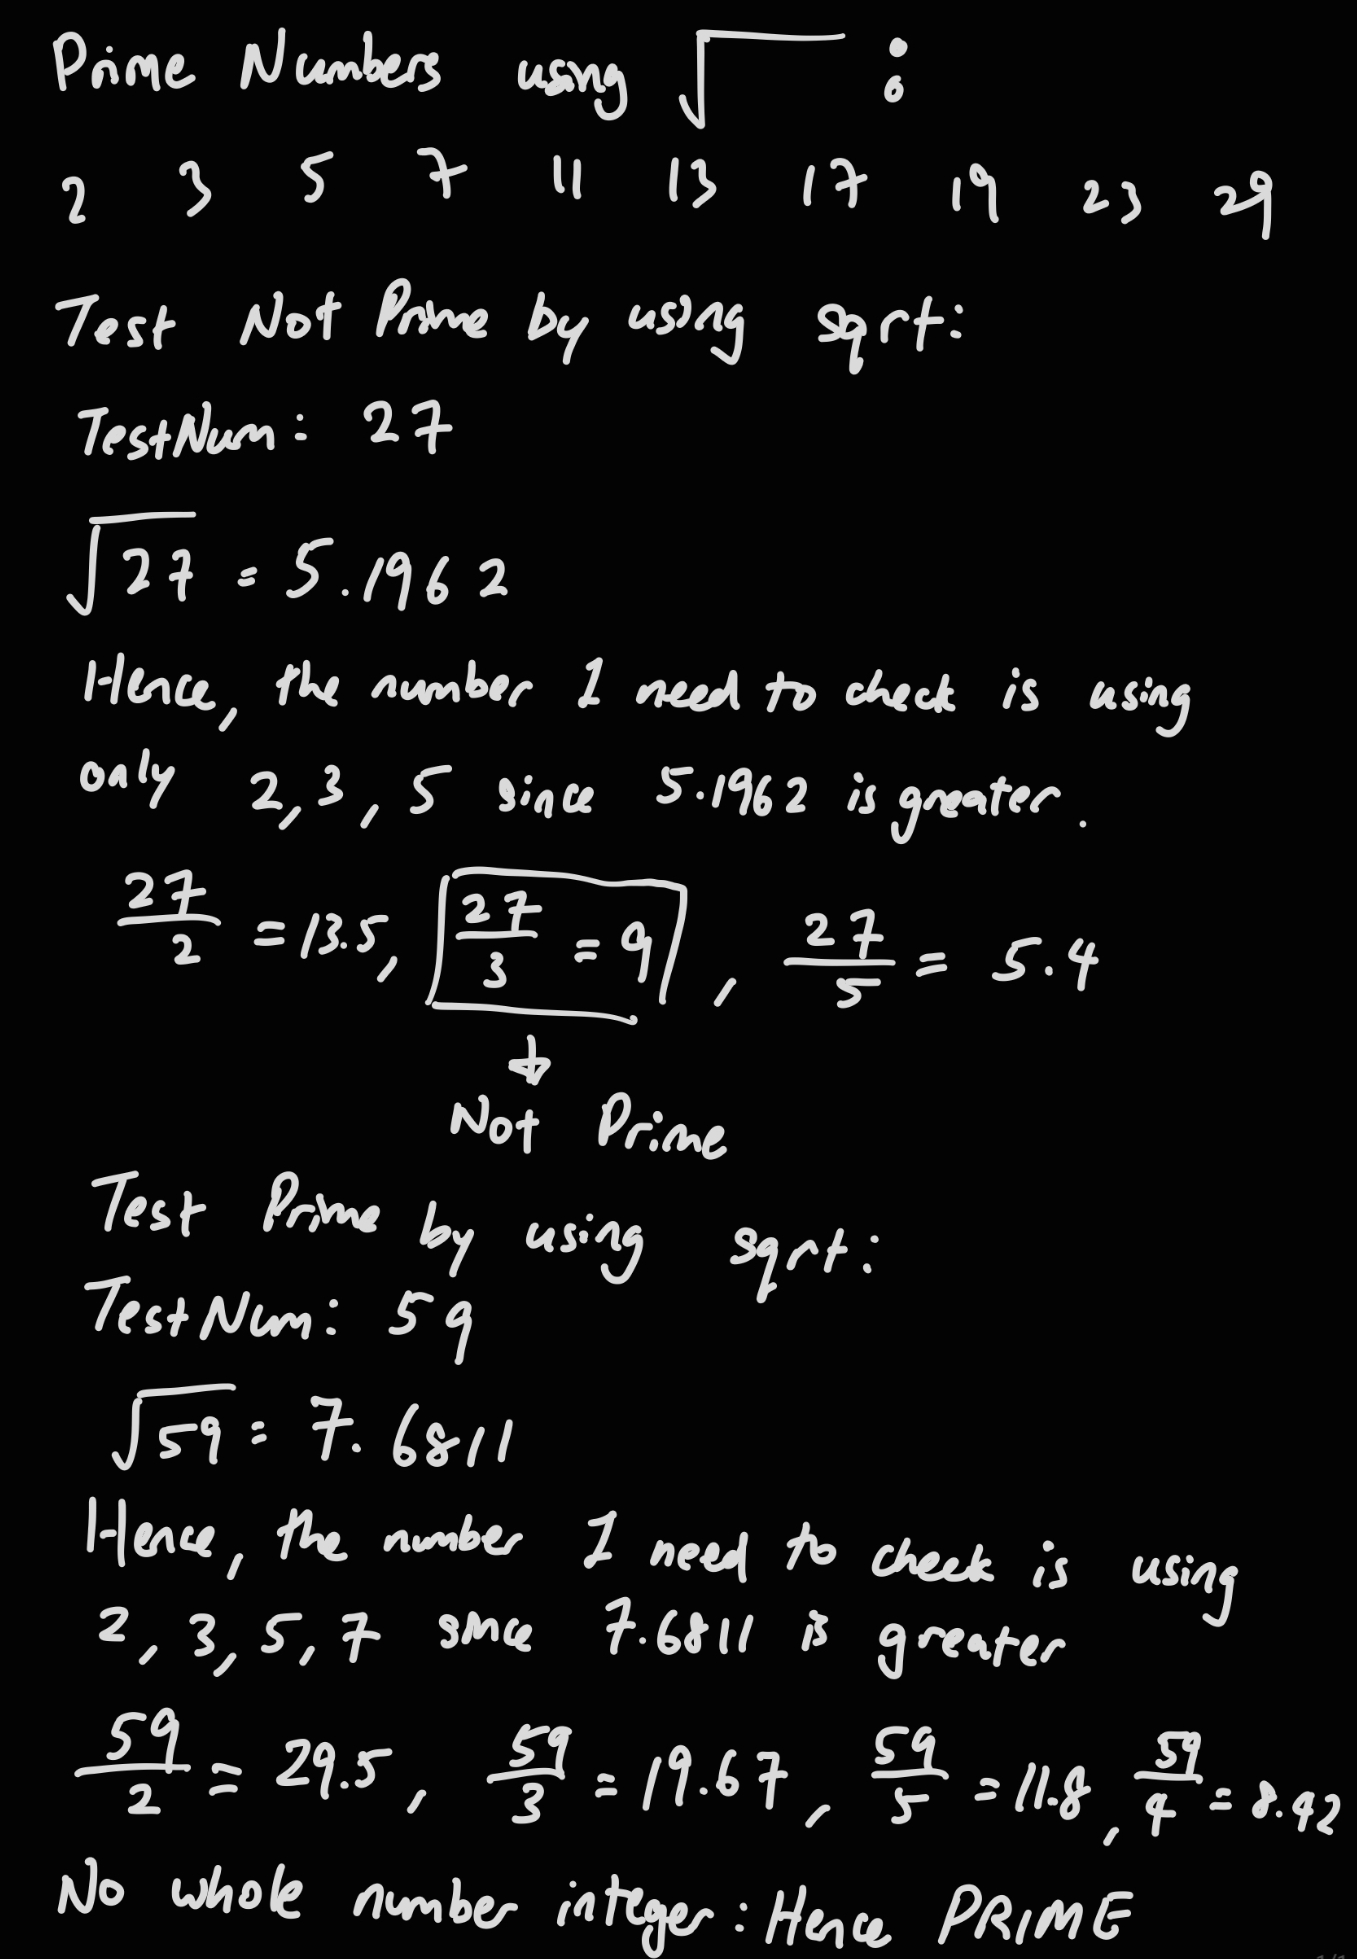 Prime Numbers using √ :
2 3 5 7 11 13 17 19 23 29
Test Not Prime by using sqrt:
TestNum: 27
√27 = 5.1962
Hence, the number I need to check is using
only 2, 3, 5 since 5.1962 is greater.
27/2 = 13.5, 27/3 = 9, 27/5 = 5.4
Not Prime
Test Prime by using sqrt:
TestNum: 59
√59 = 7.6811
Hence, the number I need to check is using
2, 3, 5, 7 since 7.6811 is greater
59/2 = 29.5, 59/3 = 19.67, 59/5 = 11.8, 59/4 = 8.42
No whole number integer: Hence PRIME